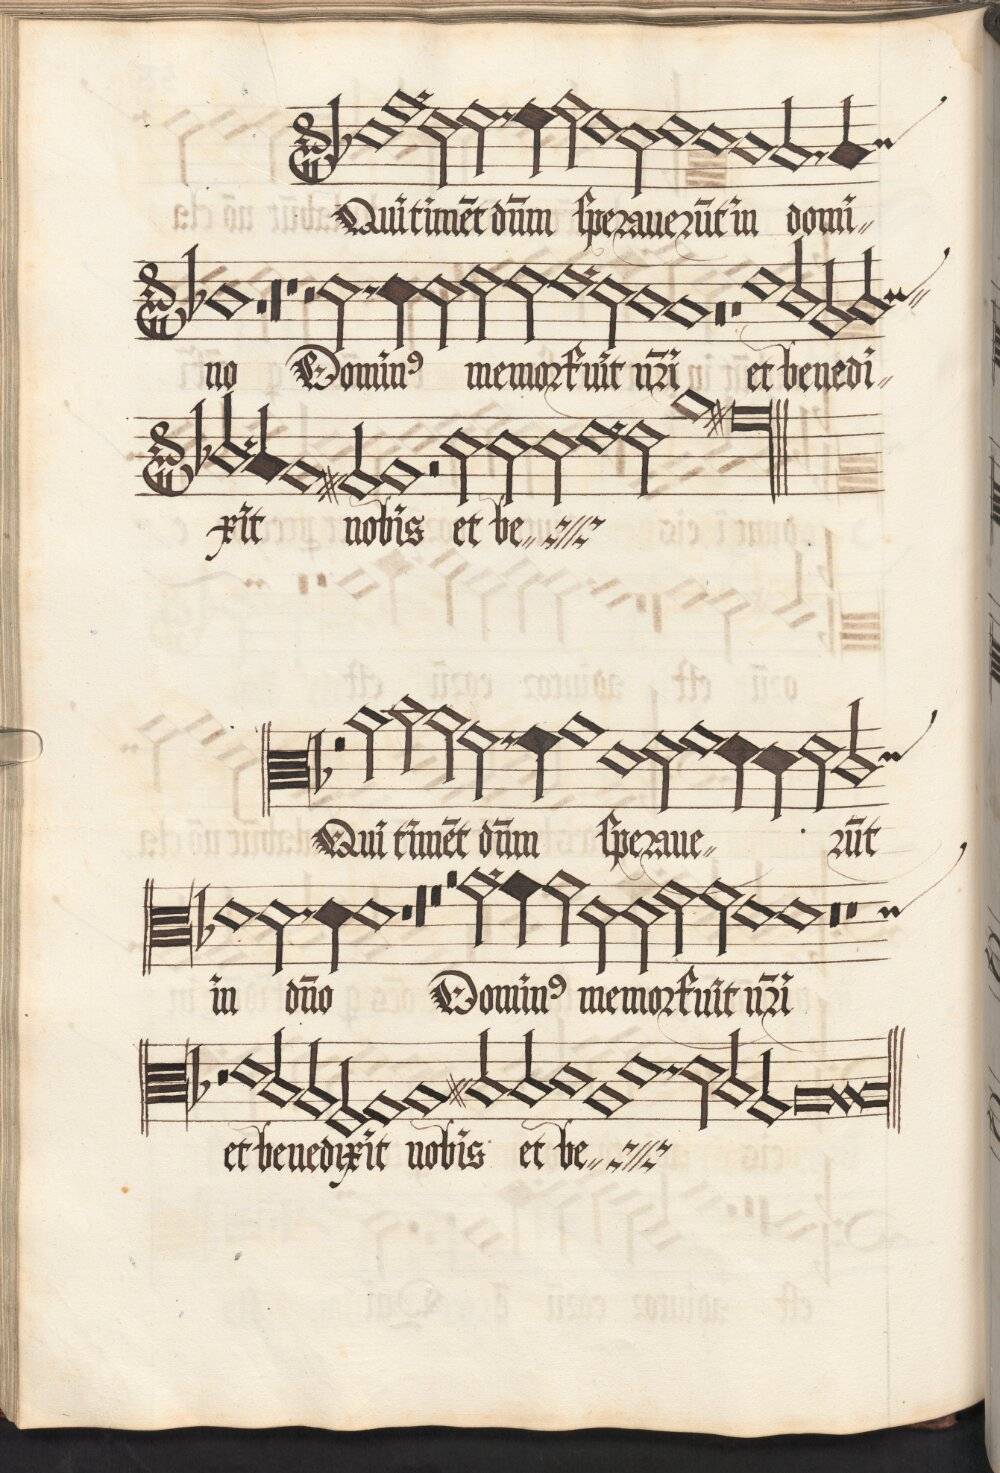 Qui timēt dn̄m sperauerūt in domi„
no Dominꝯ memor fuit nr̄i et benedi„
xit nobis et be„
Qui timēt dn̄m speraue„ rūt
in dn̄o Dominꝯ memor fuit nr̄i
et benedixit nobis et be„